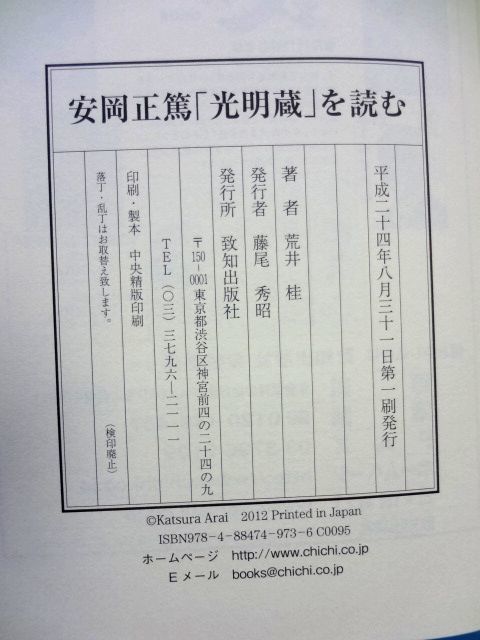 安岡正篤「光明蔵」を読む
平成二十四年八月三十一日第一刷発行
著者 荒井 桂
発行者 藤尾 秀昭
発行所 致知出版社
〒150-0001 東京都渋谷区神宮前四の二十四の九
TEL（〇三）三七九六―二一一一
印刷・製本 中央精版印刷
落丁・乱丁はお取替え致します。
（検印廃止）
©Katsura Arai 2012 Printed in Japan
ISBN978-4-88474-973-6 C0095
ホームページ http://www.chichi.co.jp
Eメール books@chichi.co.jp